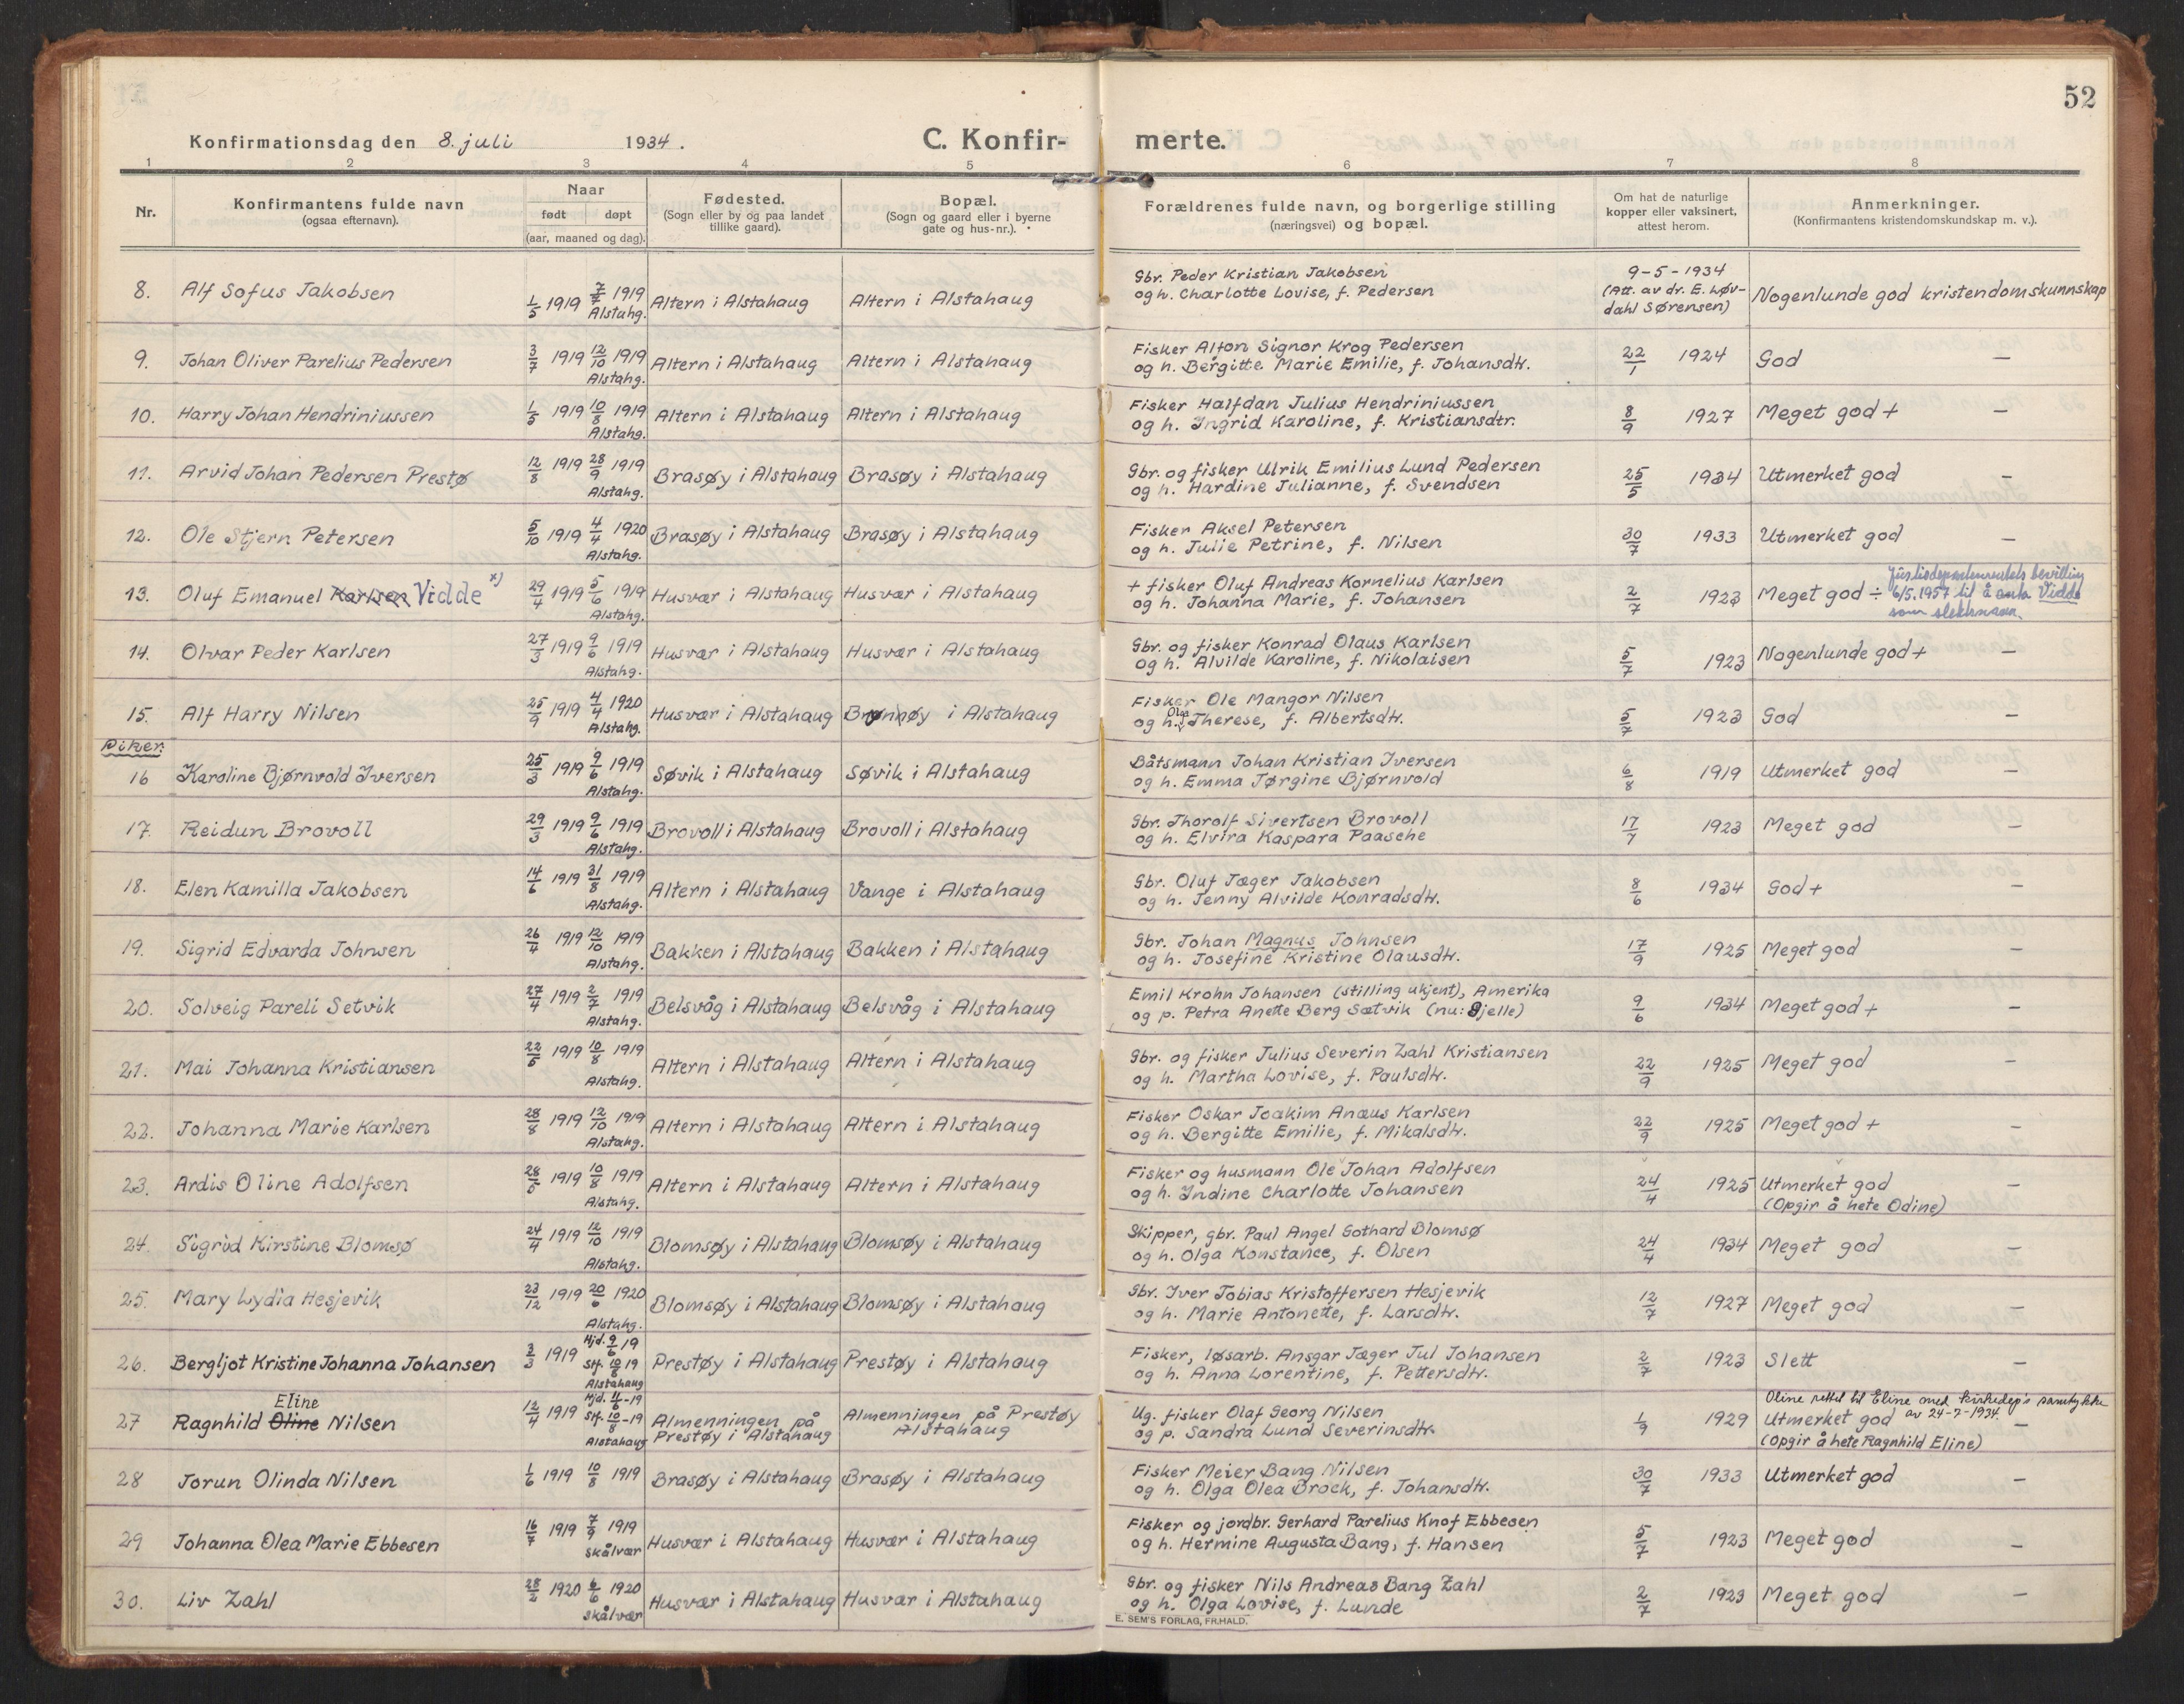 52
Konfirmationsdag den 8. juli 1934. C. Konfir- merte.
1 2 3 4 5 6 7 8
Nr. Konfirmantens fulde navn (ogsaa efternavn). Naar født døpt (aar, maaned og dag). Fødested. (Sogn eller by og paa landet tillike gaard). Bopæl. (Sogn og gaard eller i byerne gate og hus-nr.). Forældrenes fulde navn, og borgerlige stilling (næringsvei) og bopæl. Om hat de naturlige kopper eller vaksinert, attest herom. Anmerkninger. (Konfirmantens kristendomskundskap m. v.).
8. Alf Sofus Jakobsen 1/5 1919 7/7 1919 Alstahg. Altern i Alstahaug Altern i Alstahaug Gbr. Peder Kristian Jakobsen og h. Charlotte Lovise, f. Pedersen 9-5-1934 (Att. av dr. E. Løv-dahl Sørensen) Nogenlunde god kristendomskunnskap
9. Johan Oliver Parelius Pedersen 3/7 1919 12/10 1919 Alstahg. Altern i Alstahaug Altern i Alstahaug Fisker Alfon Signor Krog Pedersen og h. Bergitte Marie Emilie, f. Johansdtr. 22/1 1924 God —
10. Harry Johan Hendriniussen 1/5 1919 10/8 1919 Alstahg. Altern i Alstahaug Altern i Alstahaug Fisker Halfdan Julius Hendriniussen og h. Ingrid Karoline, f. Kristiansdtr. 8/9 1927 Meget god + —
11. Arvid Johan Pedersen Prestø 12/8 1919 28/9 1919 Alstahg. Brasøy i Alstahaug Brasøy i Alstahaug Gbr. og fisker Ulrik Emilius Lund Pedersen og h. Hardine Julianne, f. Svendsen 25/5 1934 Utmerket god —
12. Ole Stjern Petersen 5/10 1919 4/4 1920 Alstahg. Brasøy i Alstahaug Brasøy i Alstahaug Fisker Aksel Petersen og h. Julie Petrine, f. Nilsen 30/7 1933 Utmerket god —
13. Oluf Emanuel Karlsen Vidde x) 29/4 1919 5/6 1919 Alstahg. Husvær i Alstahaug Husvær i Alstahaug + fisker Oluf Andreas Kornelius Karlsen og h. Johanna Marie, f. Johansen 2/7 1923 Meget god ÷ Justisdepartementets bevilling 6/5.1957 til å anta Vidde som slektsnavn.
14. Olvar Peder Karlsen 27/3 1919 9/6 1919 Alstahg. Husvær i Alstahaug Husvær i Alstahaug Gbr. og fisker Konrad Olaus Karlsen og h. Alvilde Karoline, f. Nikolaisen 5/7 1923 Nogenlunde god + —
15. Alf Harry Nilsen 25/9 1919 4/4 1920 Alstahg. Husvær i Alstahaug Brønnøy i Alstahaug Fisker Ole Mangor Nilsen og h. Olga Therese, f. Albertsdtr. 5/7 1923 God —
Piker:
16 Karoline Bjørnvold Iversen 25/3 1919 9/6 1919 Alstahg. Søvik i Alstahaug Søvik i Alstahaug Båtsmann Johan Kristian Iversen og h. Emma Jørgine Bjørnvold 6/8 1919 Utmerket god —
17. Reidun Brovoll 29/3 1919 9/6 1919 Alstahg. Brovoll i Alstahaug Brovoll i Alstahaug Gbr. Thorolf Sivertsen Brovoll og h. Elvira Kaspara Paasche 17/7 1923 Meget god —
18. Elen Kamilla Jakobsen 14/6 1919 31/8 1919 Alstahg. Altern i Alstahaug Vange i Alstahaug Gbr. Oluf Jæger Jakobsen og h. Jenny Alvilde Konradsdtr. 8/6 1934 God + —
19. Sigrid Edvarda Johnsen 26/4 1919 12/10 1919 Alstahg. Bakken i Alstahaug Bakken i Alstahaug Gbr. Johan Magnus Johnsen og h. Josefine Kristine Olausdtr. 17/9 1925 Meget god —
20. Solveig Pareli Setvik 27/4 1919 2/7 1919 Alstahg. Belsvåg i Alstahaug Belsvåg i Alstahaug Emil Krohn Johansen (stilling ukjent), Amerika og p. Petra Anette Berg Sætvik (nu: Gjelle) 9/6 1934 Meget god + —
21. Mai Johanna Kristiansen 22/5 1919 10/8 1919 Alstahg. Altern i Alstahaug Altern i Alstahaug Gbr. og fisker Julius Severin Zahl Kristiansen og h. Martha Lovise, f. Paulsdtr. 22/9 1925 Meget god —
22. Johanna Marie Karlsen 28/8 1919 12/10 1919 Alstahg. Altern i Alstahaug Altern i Alstahaug Fisker Oskar Joakim Anæus Karlsen og h. Bergitte Emilie, f. Mikalsdtr. 22/9 1925 Meget god + —
23. Ardis Oline Adolfsen 28/5 1919 10/8 1919 Alstahg. Altern i Alstahaug Altern i Alstahaug Fisker og husmann Ole Johan Adolfsen og h. Indine Charlotte Johansen 24/4 1925 Utmerket god — (Opgir å hete Odine)
24. Sigrid Kirstine Blomsø 24/4 1919 12/10 1919 Alstahg. Blomsøy i Alstahaug Blomsøy i Alstahaug Skipper, gbr. Paul Angel Gothard Blomsø og h. Olga Konstance, f. Olsen 24/4 1934 Meget god —
25. Mary Lydia Hesjevik 23/12 1919 20/6 1920 Alstahg. Blomsøy i Alstahaug Blomsøy i Alstahaug Gbr. Iver Tobias Kristoffersen Hesjevik og h. Marie Antonette, f. Larsdtr. 12/7 1927 Meget god —
26. Bergljot Kristine Johanna Johansen 3/3 1919 Hjd. 9/6 19 Stf. 10/8 19 Alstahaug Prestøy i Alstahaug Prestøy i Alstahaug Fisker, løsarb. Ansgar Jæger Jul Johansen og h. Anna Lorentine, f. Pettersdtr. 2/7 1923 Slett —
27 Ragnhild Oline Eline Nilsen 12/4 1919 Hjd. 11/6-19 Stf. 10/8-19 Alstahaug Almenningen på Prestøy i Alstahaug Almenningen på Prestøy Alstahaug Ug. fisker Olaf Georg Nilsen og p. Sandra Lund Severinsdtr. 1/9 1929 Oline rettet til Eline med kirkedep's samtykke av 24-7-1934. Utmerket god — (Opgir å hete Ragnhild Eline)
28 Jorun Olinda Nilsen 1/6 1919 10/8 1919 Brasøy i Alstahaug Brasøy i Alstahaug Fisker Meier Bang Nilsen og h. Olga Olea Brock, f. Johansdtr. 30/7 1933 Utmerket god —
29 Johanna Olea Marie Ebbesen 16/7 1919 7/9 1919 Skålvær Husvær i Alstahaug Husvær i Alstahaug Fisker og jordbr. Gerhard Parelius Knof Ebbesen og h. Hermine Augusta Bang, f. Hansen 5/7 1923 Meget god —
30. Liv Zahl 28/2 1920 6/6 1920 Skålvær Husvær i Alstahaug Husvær i Alstahaug Gbr. og fisker Nils Andreas Bang Zahl og h. Olga Lovise, f. Lunde 2/7 1923 Meget god —
E. SEM'S FORLAG, FR.HALD.